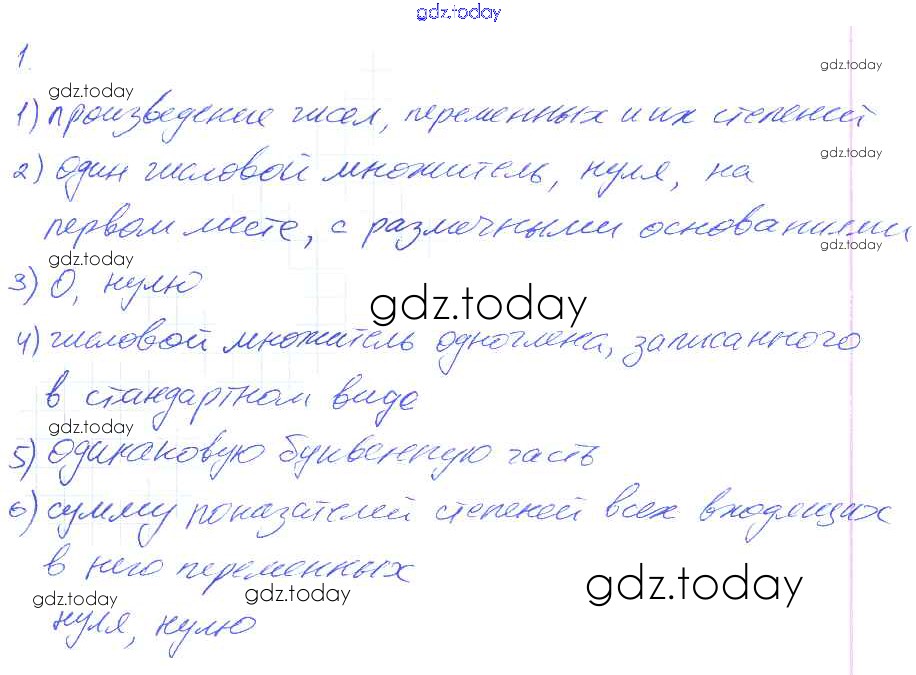 gdz.today
1.
gdz.today
gdz.today
1) произведение чисел, переменных и их степеней
gdz.today
2) один числовой множитель, нуля, на
первом месте, с различными основаниями
gdz.today
gdz.today
3) 0, нулю
gdz.today
4) числовой множитель одночлена, записанного
в стандартном виде
gdz.today
5) одинаковую буквенную часть
6) сумму показателей степеней всех входящих
в него переменных
gdz.today
gdz.today
gdz.today
нуля, нулю